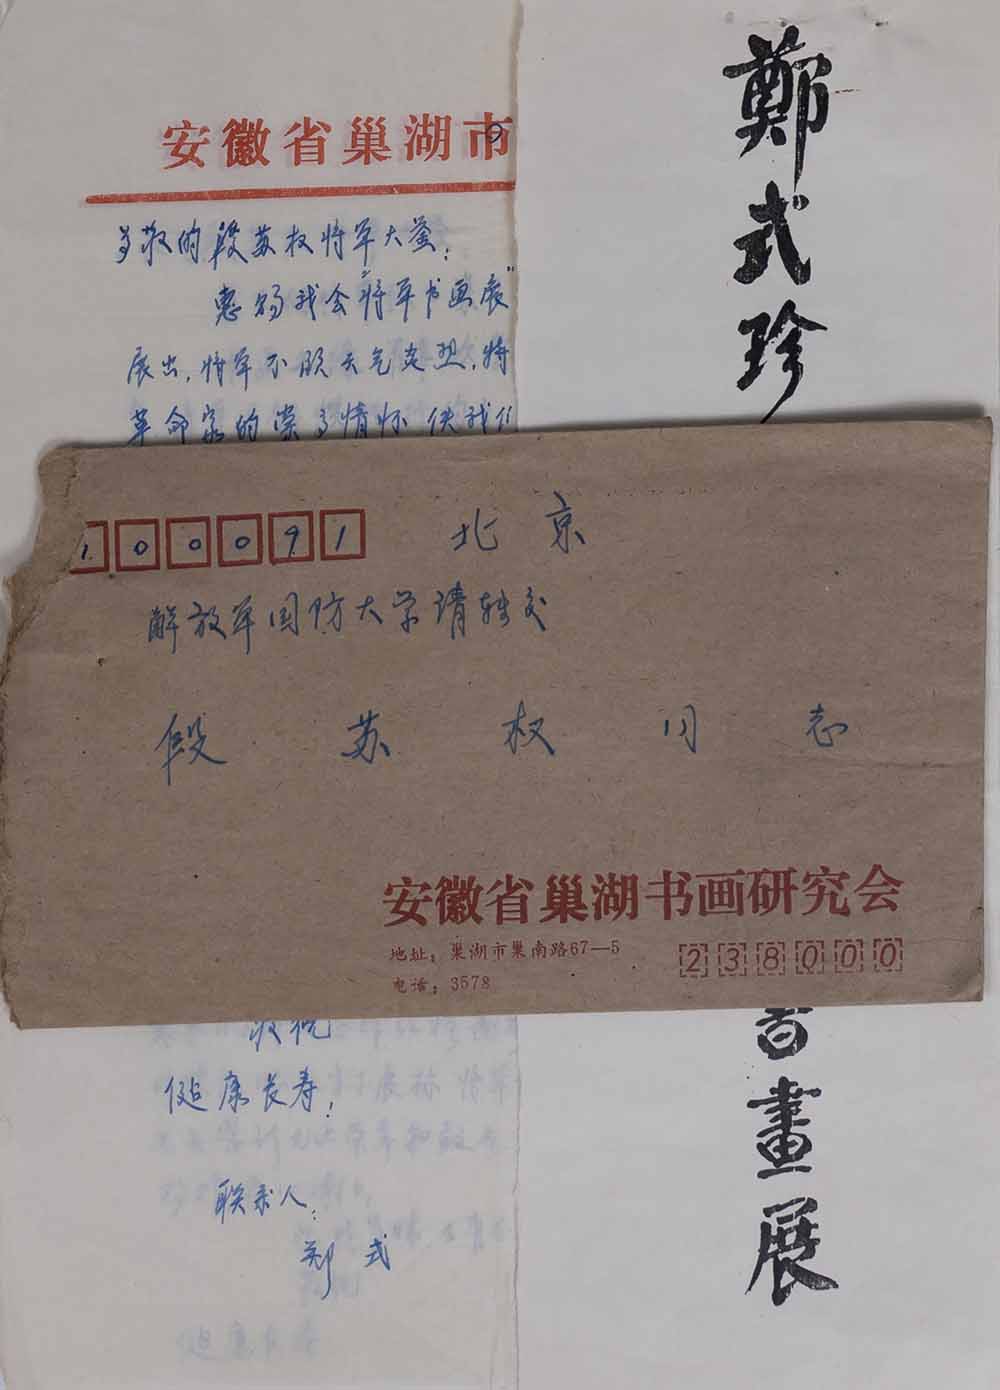 安徽省巢湖市
尊敬的段苏权将军大鉴:
惠赐我会"将军书画展"
展出,将军不顾天气炎热,将
革命家的崇高情怀使我们
100091
北京
解放军国防大学请转交
段苏权同志
安徽省巢湖书画研究会
地址:巢湖市巢南路67—5
电话:3578
238000
敬祝
健康长寿!
联系人:
郑式
鄭式珍
書畫展